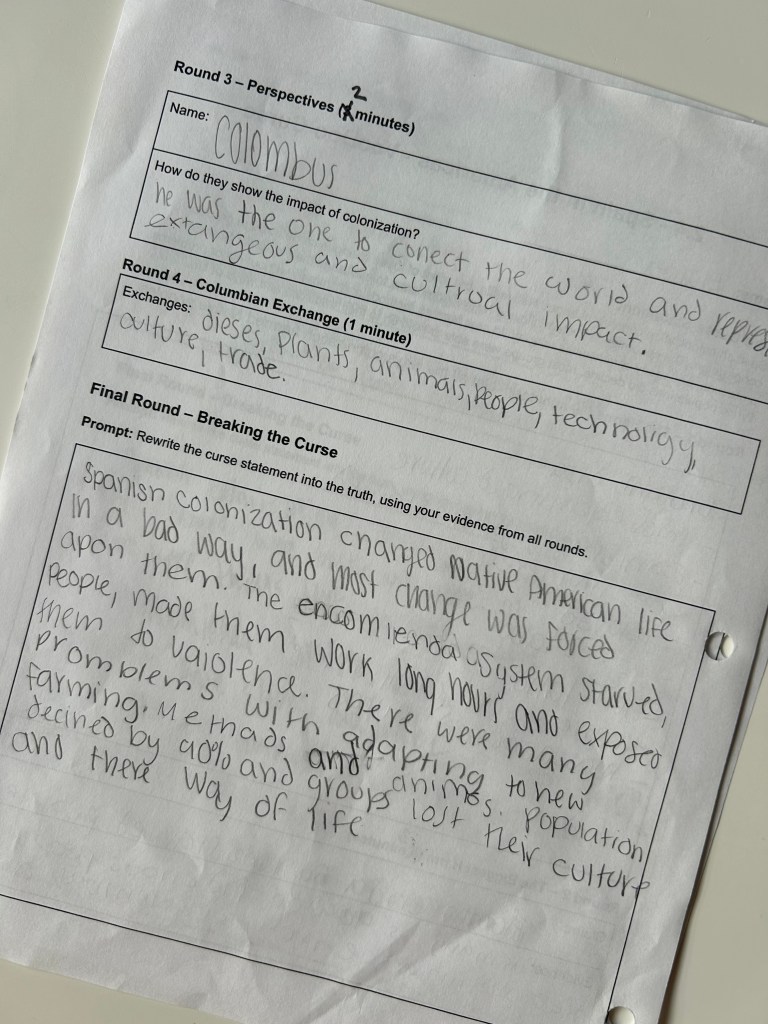 Round 3 – Perspectives (2 minutes)
Name: Colombus
How do they show the impact of colonization?
he was the one to conect the world and repres
extangeous and cultrual impact.
Round 4 – Columbian Exchange (1 minute)
Exchanges: dieses, plants, animals, people, technoligy,
culture, trade.
Final Round – Breaking the Curse
Prompt: Rewrite the curse statement into the truth, using your evidence from all rounds.
Spanish colonization changed Native American life
in a bad way, and most change was forced
apon them. The encomienda system starved,
people, made them work long hours and exposed
them to vaiolence. There were many
promblems with adapting to new
farming. Methads and animos. Population
decined by 90% and groups lost their culture
and there way of life